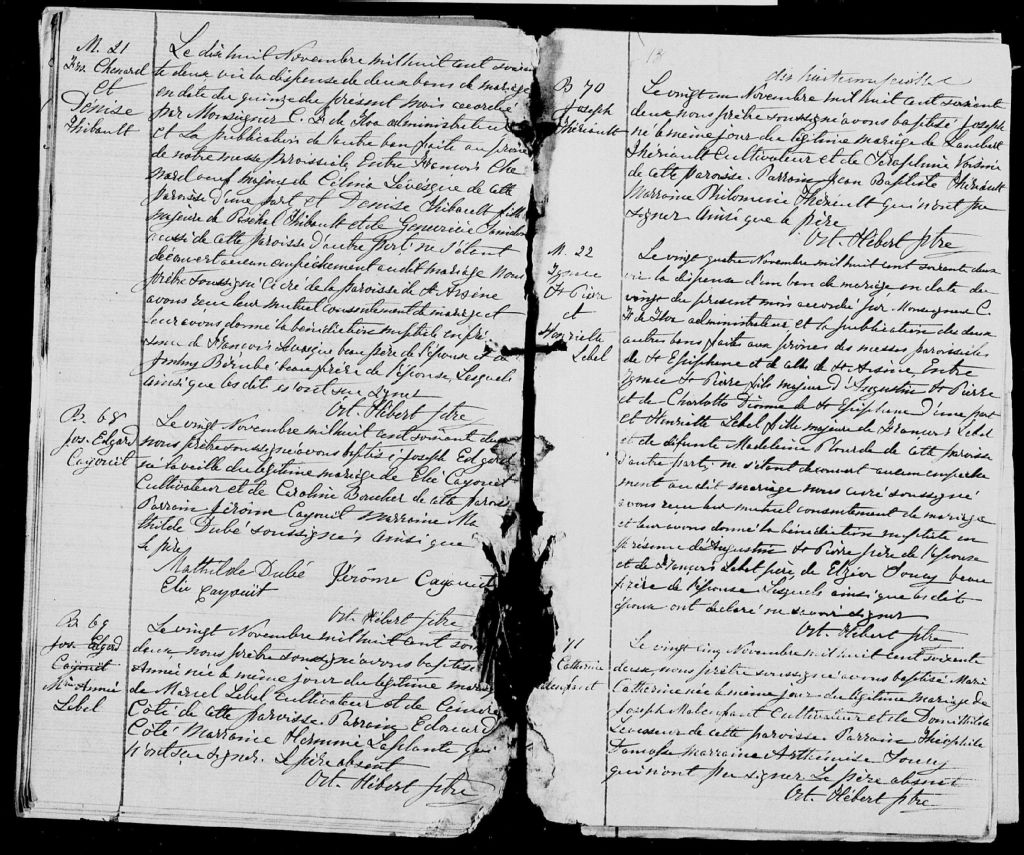 M. 21
Frs. Chenard
et
Denise
Thibault
Le dix huit Novembre mil huit cent soixan
te deux vu la dispense de deux bans de mariage
en date du quinze du présent mois accordée
par Monseigneur C. F. de Tloa administrateur
et la publication de l'autre ban faite au prône
de notre messe paroissiale Entre François Che
nard veuf majeur de Célina Lévesque de cette
paroisse d'une part et Denise Thibault fille
majeure de Paschal Thibault et de Geneviève
aussi de cette paroisse d'autre part, ne s'étant
découvert aucun empêchement au dit mariage Nous
prêtre soussigné Curé de la paroisse de St Arsène
avons reçu leur mutuel consentement de mariage et
leur avons donné la bénédiction nuptiale en pré
sence de François beau père de l'époux et de
Bérubé beau frère de l'épouse, Lesquels
ainsi que les dits époux n'ont su signer
Oct. Hébert ptre
B 68
Jos. Edgard
Cayouit
Le vingt Novembre mil huit cent soixante deux
nous prêtre soussigné avons baptisé Joseph Edgard
né la veille du légitime mariage de Elie Cayouit
Cultivateur et de Caroline Boucher de cette paroisse
Parrain Jérôme Cayouit Marraine Ma
thilde Dubé soussignés ainsi que
le père
Mathilde Dubé Jérôme Cayouit
Elie Cayouit
Oct. Hébert ptre
B 69
Jos. Edgard
Cayouit
Mie Annié
Lebel
Le vingt Novembre mil huit cent soix
deux, nous prêtre soussigné avons baptisé
Annié née le même jour du légitime mari
de Marcel Lebel Cultivateur et de
Côté de cette paroisse Parrain Edouard
Côté Marraine Laplante qui
n'ont su signer. Le père absent
Oct. Hébert ptre
13
B 70
Joseph
Thériault
dix huit
Le vingt un Novembre mil huit cent soixante
deux nous prêtre soussigné avons baptisé Joseph
né le même jour du légitime mariage de Lambert
Thériault Cultivateur et de Séraphine Voisine
de cette paroisse. Parrain Jean Baptiste Thériault
Marraine Philomène Thériault qui n'ont pu
signer ainsi que le père
Oct. Hébert ptre
M. 22
Ignace
St Pierre
et
Henriette
Lebel
Le vingt quatre Novembre mil huit cent soixante deux
vu la dispense d'un ban de mariage en date du
vingt du présent mois accordé par Monseigneur C.
F. de Tloa administrateur et la publication des deux
autres bans faite aux prônes des messes paroissiales
de St Epiphane et de celle de St Arsène Entre
Ignace St Pierre fils majeur d'Augustin St Pierre
et de Charlotte Dionne de St Epiphane d'une part
et Henriette Lebel fille majeure de François Lebel
et de défunte Madeleine Plourde de cette paroisse
d'autre part, ne s'étant découvert aucun empêche
ment au dit mariage nous curé soussigné
avons reçu leur mutuel consentement de mariage
et leur avons donné la bénédiction nuptiale en
présence de Augustin St Pierre père de l'époux
et de François Lebel père, de Elzéar Soucy beau
frère de l'épouse Lesquels ainsi que les dits
époux ont déclaré ne savoir signer
Oct. Hébert ptre
71
Catherine
Malenfant
Le vingt cinq Novembre mil huit cent soixante
deux, nous prêtre soussigné avons baptisé Marie
Catherine née le même jour du légitime mariage de
Joseph Malenfant Cultivateur et de Domithilde
Levasseur de cette paroisse. Parrain Théophile
Marraine Arthémise Soucy
qui n'ont pu signer Le père absent
Oct. Hébert ptre